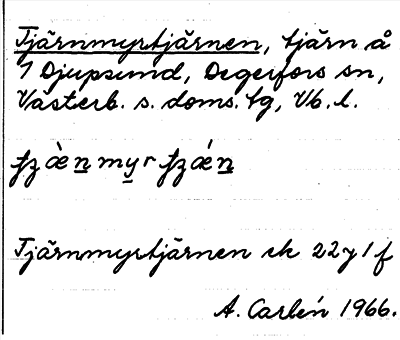 Tjärnmyrtjärnen, tjärn å
7 Djupsund, Degerfors sn,
Västerb. s. doms. tg, Vb. l.
Tjärnmyrtjärnen ek 22 y 1 f
A. Carlén 1966.